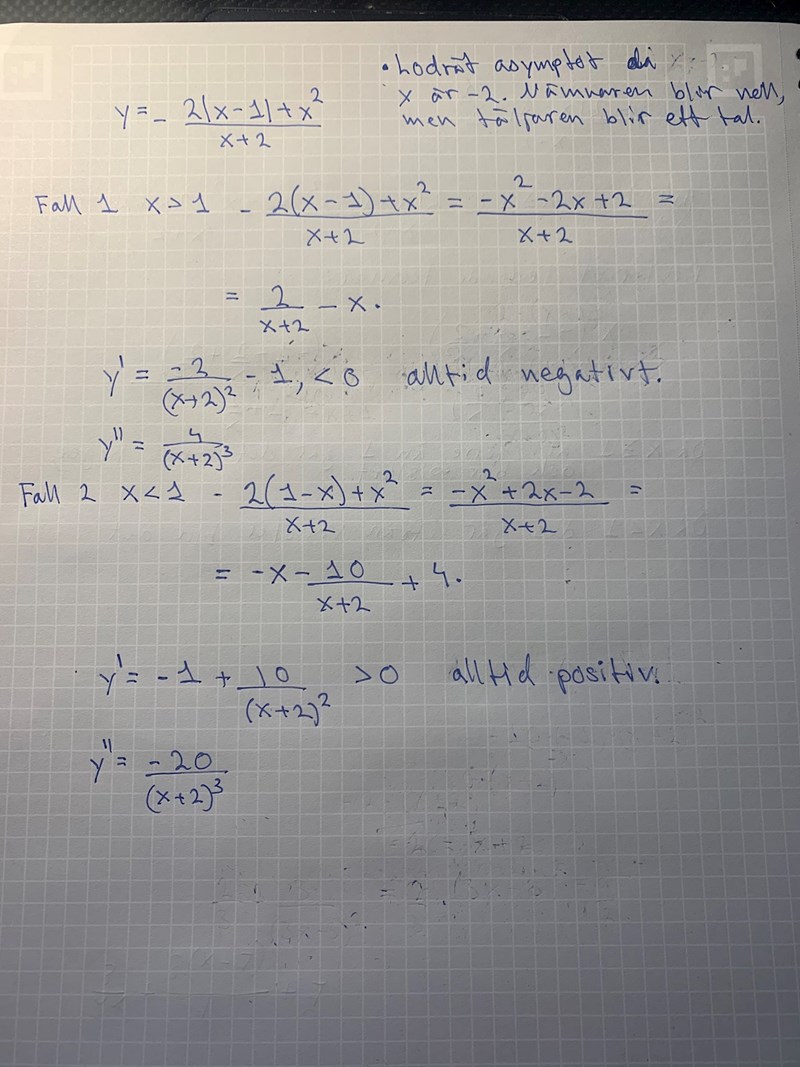 • Lodrät asymptot då x
x är -2. Nämnaren blir noll,
men täljaren blir ett tal.
y = - (2|x-1| + x^2)/(x+2)
Fall 1 x > 1 - (2(x-1) + x^2)/(x+2) = (-x^2 - 2x + 2)/(x+2) =
= 2/(x+2) - x.
y' = -2/(x+2)^2 - 1, < 0 alltid negativt.
y'' = 4/(x+2)^3
Fall 2 x < 1 - (2(1-x) + x^2)/(x+2) = (-x^2 + 2x - 2)/(x+2) =
= -x - 10/(x+2) + 4.
y' = -1 + 10/(x+2)^2 > 0 alltid positiv.
y'' = -20/(x+2)^3